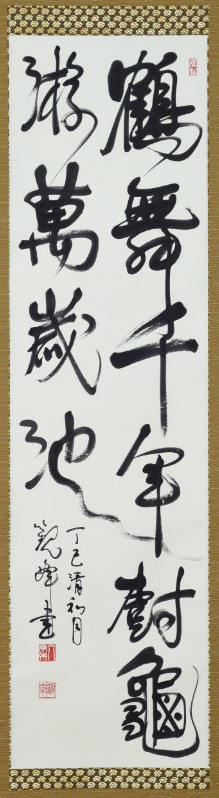 鶴舞千年樹龜
游萬歲池
丁巳清和月
觀峰書